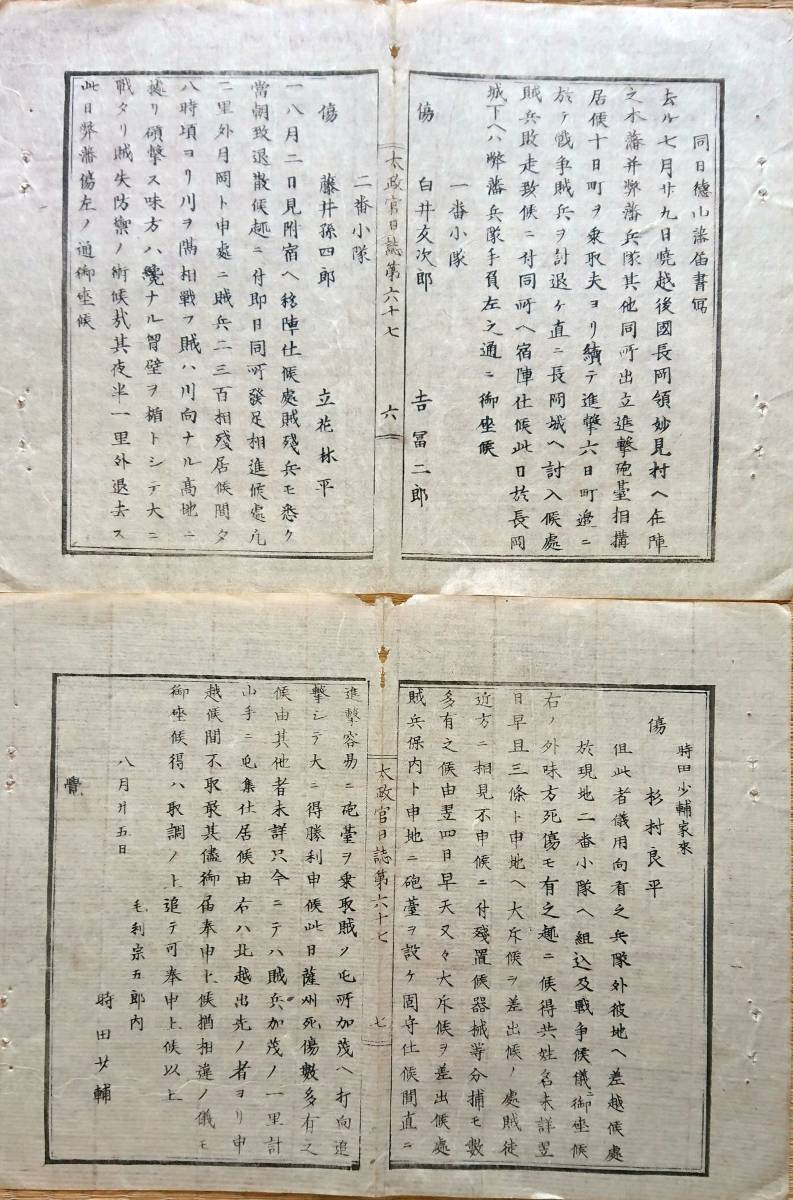 同日德山藩届書寫
去ル七月廿九日曉越後國長岡領妙見村ヘ在陣
之本藩并弊藩兵隊其他同所出立進擊砲臺相搆
居候十日町ヲ乘取夫ヨリ續テ進擊六日町邉ニ
於テ戰爭賊兵ヲ討退ケ直ニ長岡城ヘ討入候處
賊兵敗走致候ニ付同所ヘ宿陣仕候此日於長岡
城下ヘハ弊藩兵隊手負左之通ニ御座候
一番小隊
傷 白井友次郎 吉冨二郎
太政官日誌第六十七 六
二番小隊
傷 藤井孫四郎 立花林平
一八月二日見附宿ヘ移陣仕候處賊殘兵モ悉ク
當朝致退散候趣ニ付即日同所發足相進候處凢
二里外月岡ト申處ニ賊兵二三百相殘居候間夕
八時頃ヨリ川ヲ隔相戰フ賊ハ川向ナル高地ニ
據リ頻擊ス味方ハ纔ナル胷壁ヲ楯トシテ大ニ
戰タリ賊失防禦ノ術候哉其夜半一里外退去ス
此日弊藩傷左ノ通御座候
時田少輔家來
傷 杉村良平
但此者儀用向有之兵隊外彼地ヘ差越候處
於現地二番小隊ヘ組込及戰爭候儀ニ御座候
右ノ外味方死傷モ有之趣ニ候得共姓名未詳翌
日早旦三條ト申地ヘ大斥候ヲ差出候ノ處賊徒
近方ニ相見不申候ニ付殘置候器械等分捕モ數
多有之候由翌四日早天又々大斥候ヲ差出候處
賊兵保内ト申地ニ砲臺ヲ設ケ固守仕候間直ニ
太政官日誌第六十七 七
進擊容易ニ砲臺ヲ乘取賊ノ屯所加茂ヘ打向追
擊シテ大ニ得勝利申候此日薩州死傷數多有之
候由其他者未詳只今ニテハ賊兵加茂ノ一里計
小手ニ屯集仕居候由右ハ北越出先ノ者ヨリ申
越候間不取敢其儘御届奉申上候猶相違ノ儀モ
御座候得ハ取調ノ上追テ可奉申上候以上
八月廾五日
毛利宗五郎内
時田少輔
覺